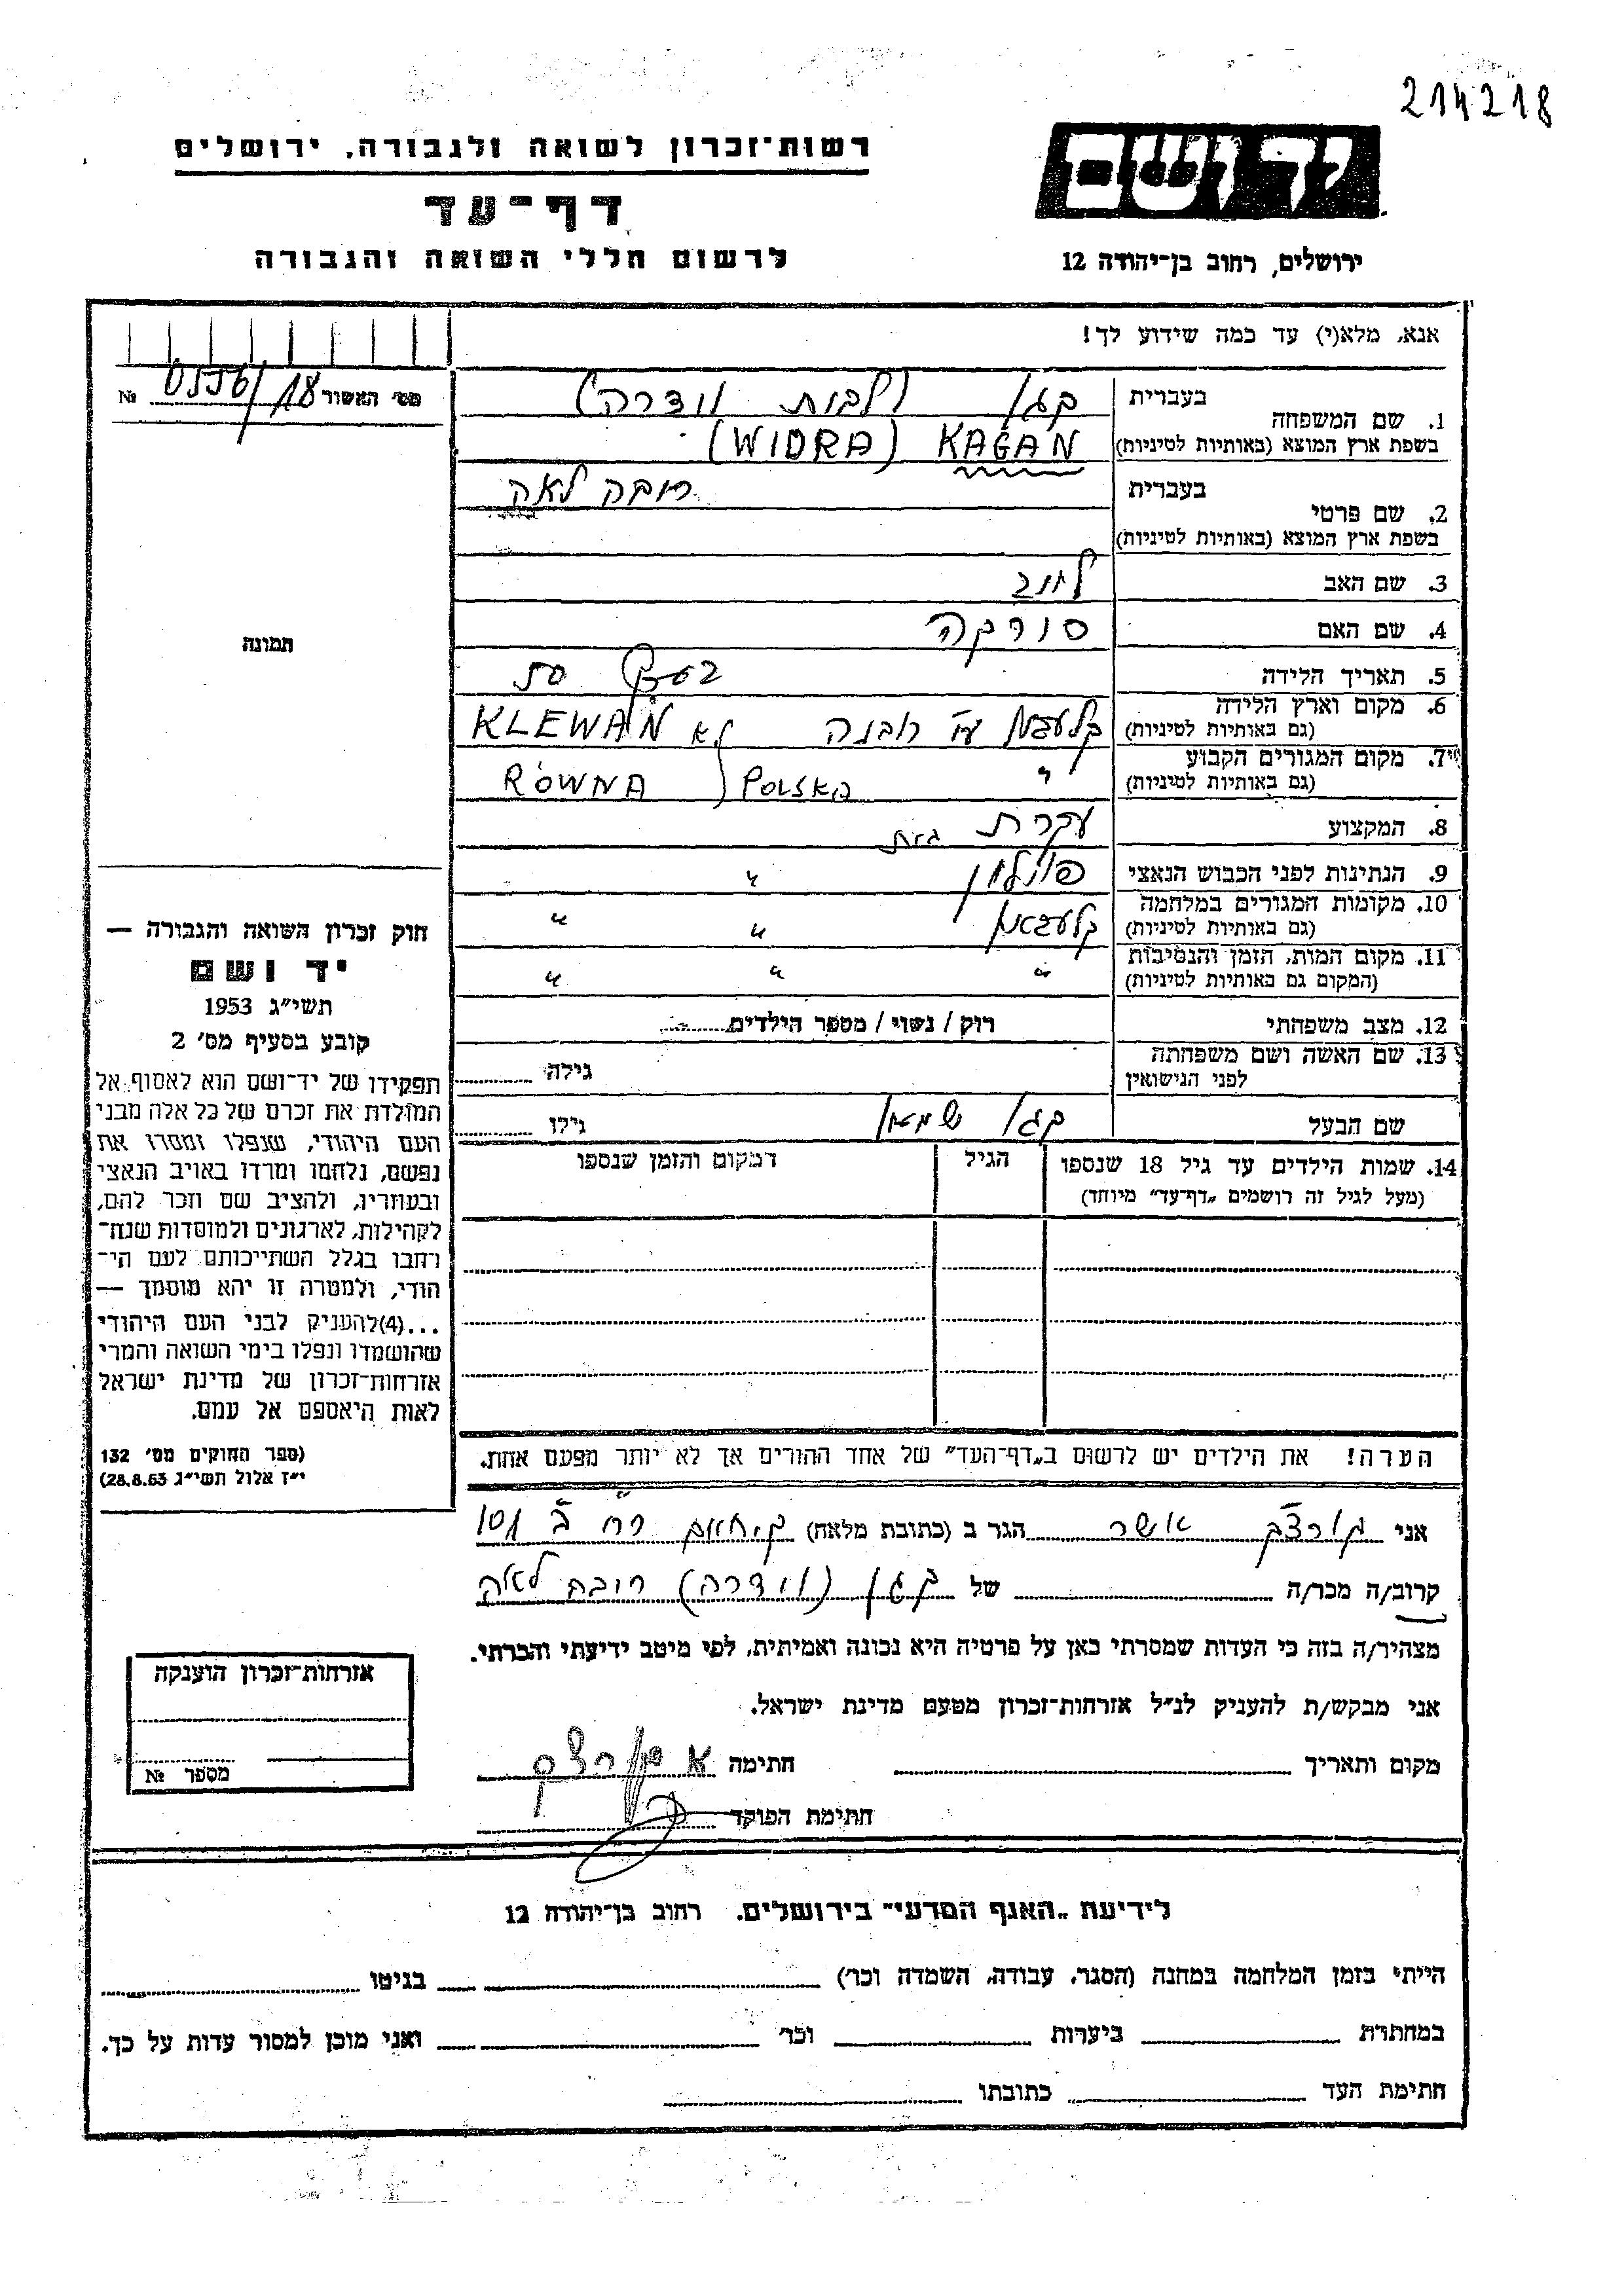 214218
רשות־זכרון לשואה ולגבורה, ירושלים
דף־עד
לרשום חללי השואה והגבורה
יד ושם
ירושלים, רחוב בן־יהודה 12
אנא, מלא(י) עד כמה שידוע לך!
מס׳ האשור 0556/18 №
1. שם המשפחה
בעברית קגן (לבית וידרה)
בשפת ארץ המוצא (באותיות לטיניות) KAGAN (WIDRA)
2. שם פרטי
בעברית לאה
בשפת ארץ המוצא (באותיות לטיניות)
3. שם האב לייב
4. שם האם סורקה
5. תאריך הלידה
6. מקום וארץ הלידה
(גם באותיות לטיניות) KLEWAŃ
7. מקום המגורים הקבוע
(גם באותיות לטיניות) " POLSKA RÓWNA
8. המקצוע עקרת בית
9. הנתינות לפני הכבוש הנאצי פולין "
10. מקומות המגורים במלחמה
(גם באותיות לטיניות) קלעבאן " "
11. מקום המות, הזמן והנסיבות
(המקום גם באותיות לטיניות) " " "
12. מצב משפחתי רוק / נשוי / מספר הילדים
13. שם האשה ושם משפחתה
לפני הנישואין גילה
שם הבעל קגן גילו
14. שמות הילדים עד גיל 18 שנספו הגיל המקום והזמן שנספו
(מעל לגיל זה רושמים „דף־עד” מיוחד)
הערה! את הילדים יש לרשום ב„דף־העד” של אחד ההורים אך לא יותר מפעם אחת.
תמונה
חוק זכרון השואה והגבורה —
יד ושם
תשי״ג 1953
קובע בסעיף מס׳ 2
תפקידו של יד־ושם הוא לאסוף אל
המולדת את זכרם של כל אלה מבני
העם היהודי, שנפלו ומסרו את
נפשם, נלחמו ומרדו באויב הנאצי
ובעוזריו, ולהציב שם וזכר להם,
לקהילות, לארגונים ולמוסדות שנח־
רבו בגלל השתייכותם לעם הי־
הודי, ולמטרה זו יהא מוסמך —
...(4)להעניק לבני העם היהודי
שהושמדו ונפלו בימי השואה והמרי
אזרחות־זכרון של מדינת ישראל
לאות היאספם אל עמם.
(ספר החוקים מס׳ 132
י״ז אלול תשי״ג 28.8.53)
אני אשר הגר ב (כתובת מלאה)
קרוב/ה מכר/ה של קגן (וידרה) לאה
מצהיר/ה בזה כי העדות שמסרתי כאן על פרטיה היא נכונה ואמיתית, לפי מיטב ידיעתי והכרתי.
אני מבקש/ת להעניק לנ״ל אזרחות־זכרון מטעם מדינת ישראל.
מקום ותאריך חתימה
חתימת הפוקד
אזרחות־זכרון הוענקה
מספר №
לידיעת „האגף המדעי” בירושלים, רחוב בן־יהודה 12
הייתי בזמן המלחמה במחנה (הסגר, עבודה, השמדה וכו׳) בגיטו
במחתרת ביערות וכו׳ ואני מוכן למסור עדות על כך.
חתימת העד כתובתו